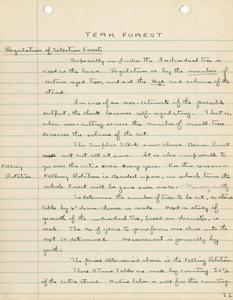 TEAK FOREST
Regulation of Selection Forests
Especially in India the Individual tree is
used as the basis. Regulation is by the number of
mature sized trees, and not the age and volume of the
stand.
In case of an over-estimate of the possible
output, the check becomes self-regulating. That is,
when over-cutting occurs the number of small trees
decreases the volume of the cut.
The Surplus Stock above Normal
not cut all at once. Nor is it possible to
go over the entire area every year. For this reason a
Felling Rotation is decided upon, in which time the
whole Forest will be gone over once.
Felling
Rotation.
To determine the number of trees to be cut, a stand
table by 6" diam. classes is made. Next a study of
growth of the individual tree, based on diameter, is
made. The no. of years to grow from one class into the
next is determined. Measurement is generally by
girth.
The period determined above is the Felling Rotation.
These Stand Tables are made by counting 20%
of the entire stand. Native labor is used for this counting.